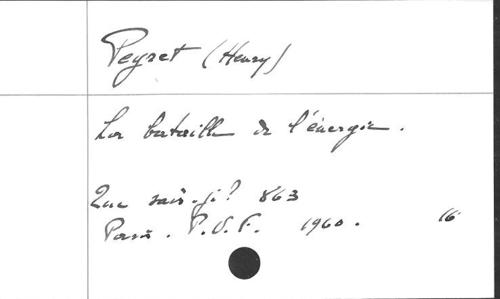 Peyret (Henry)
La bataille de l'énergie.
Que sais-je? 863
Paris. P.U.F. 1960. 16